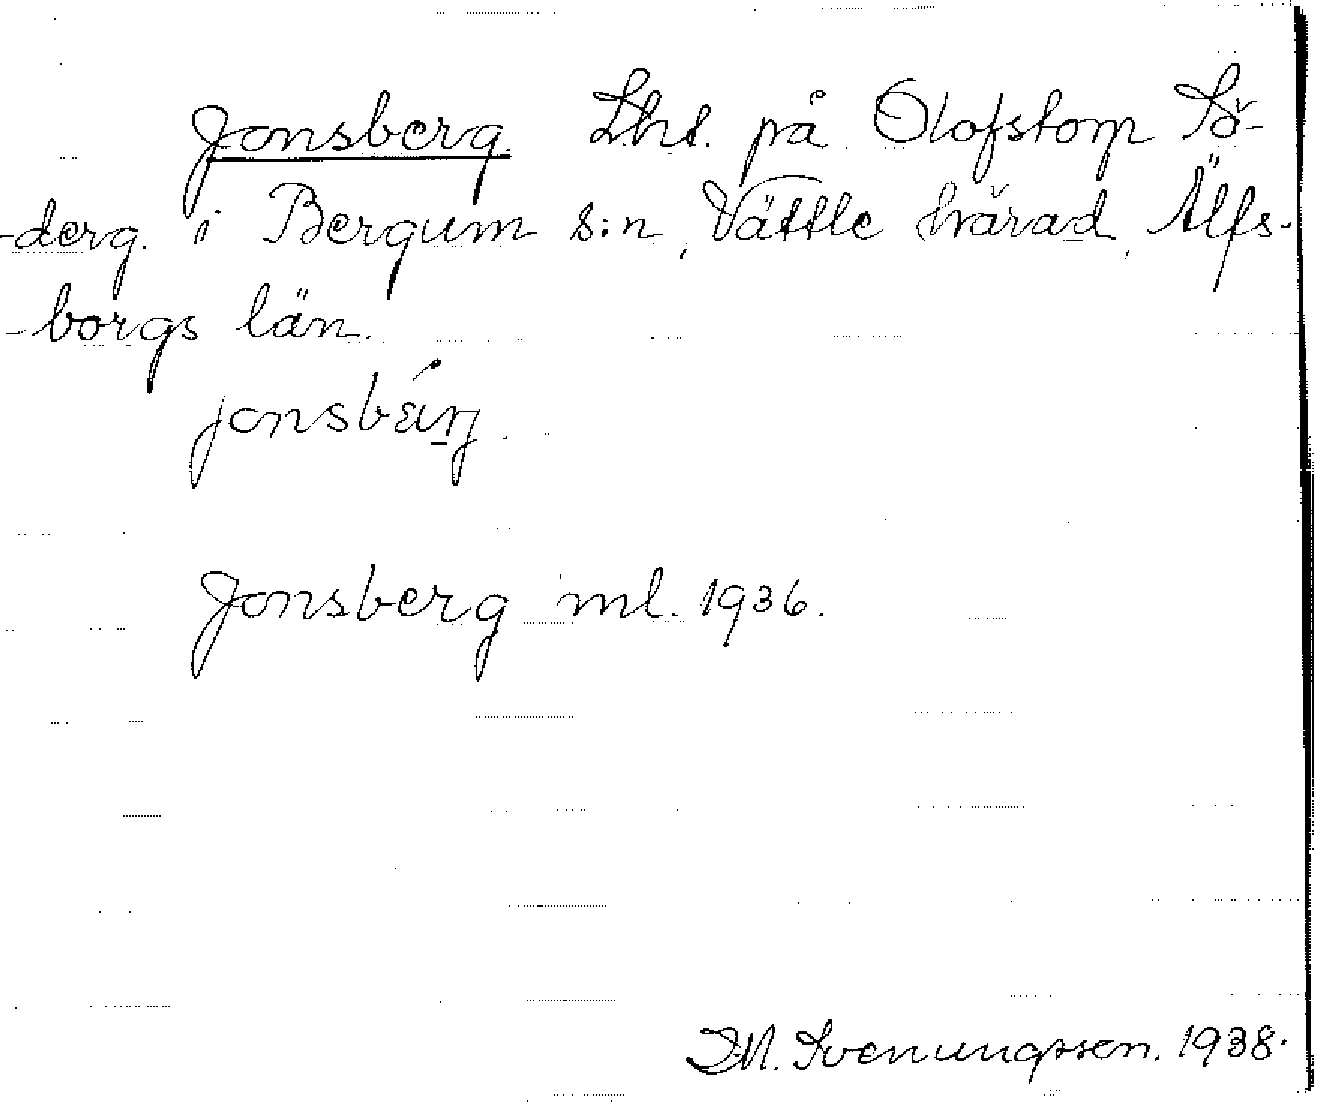 Jonsberg. Lht. på Olofstorp Sö-
-derg. i Bergum s:n, Vättle härad, Älfs-
-borgs län.
Jonsberg ml. 1936.
Svenungsson. 1938.